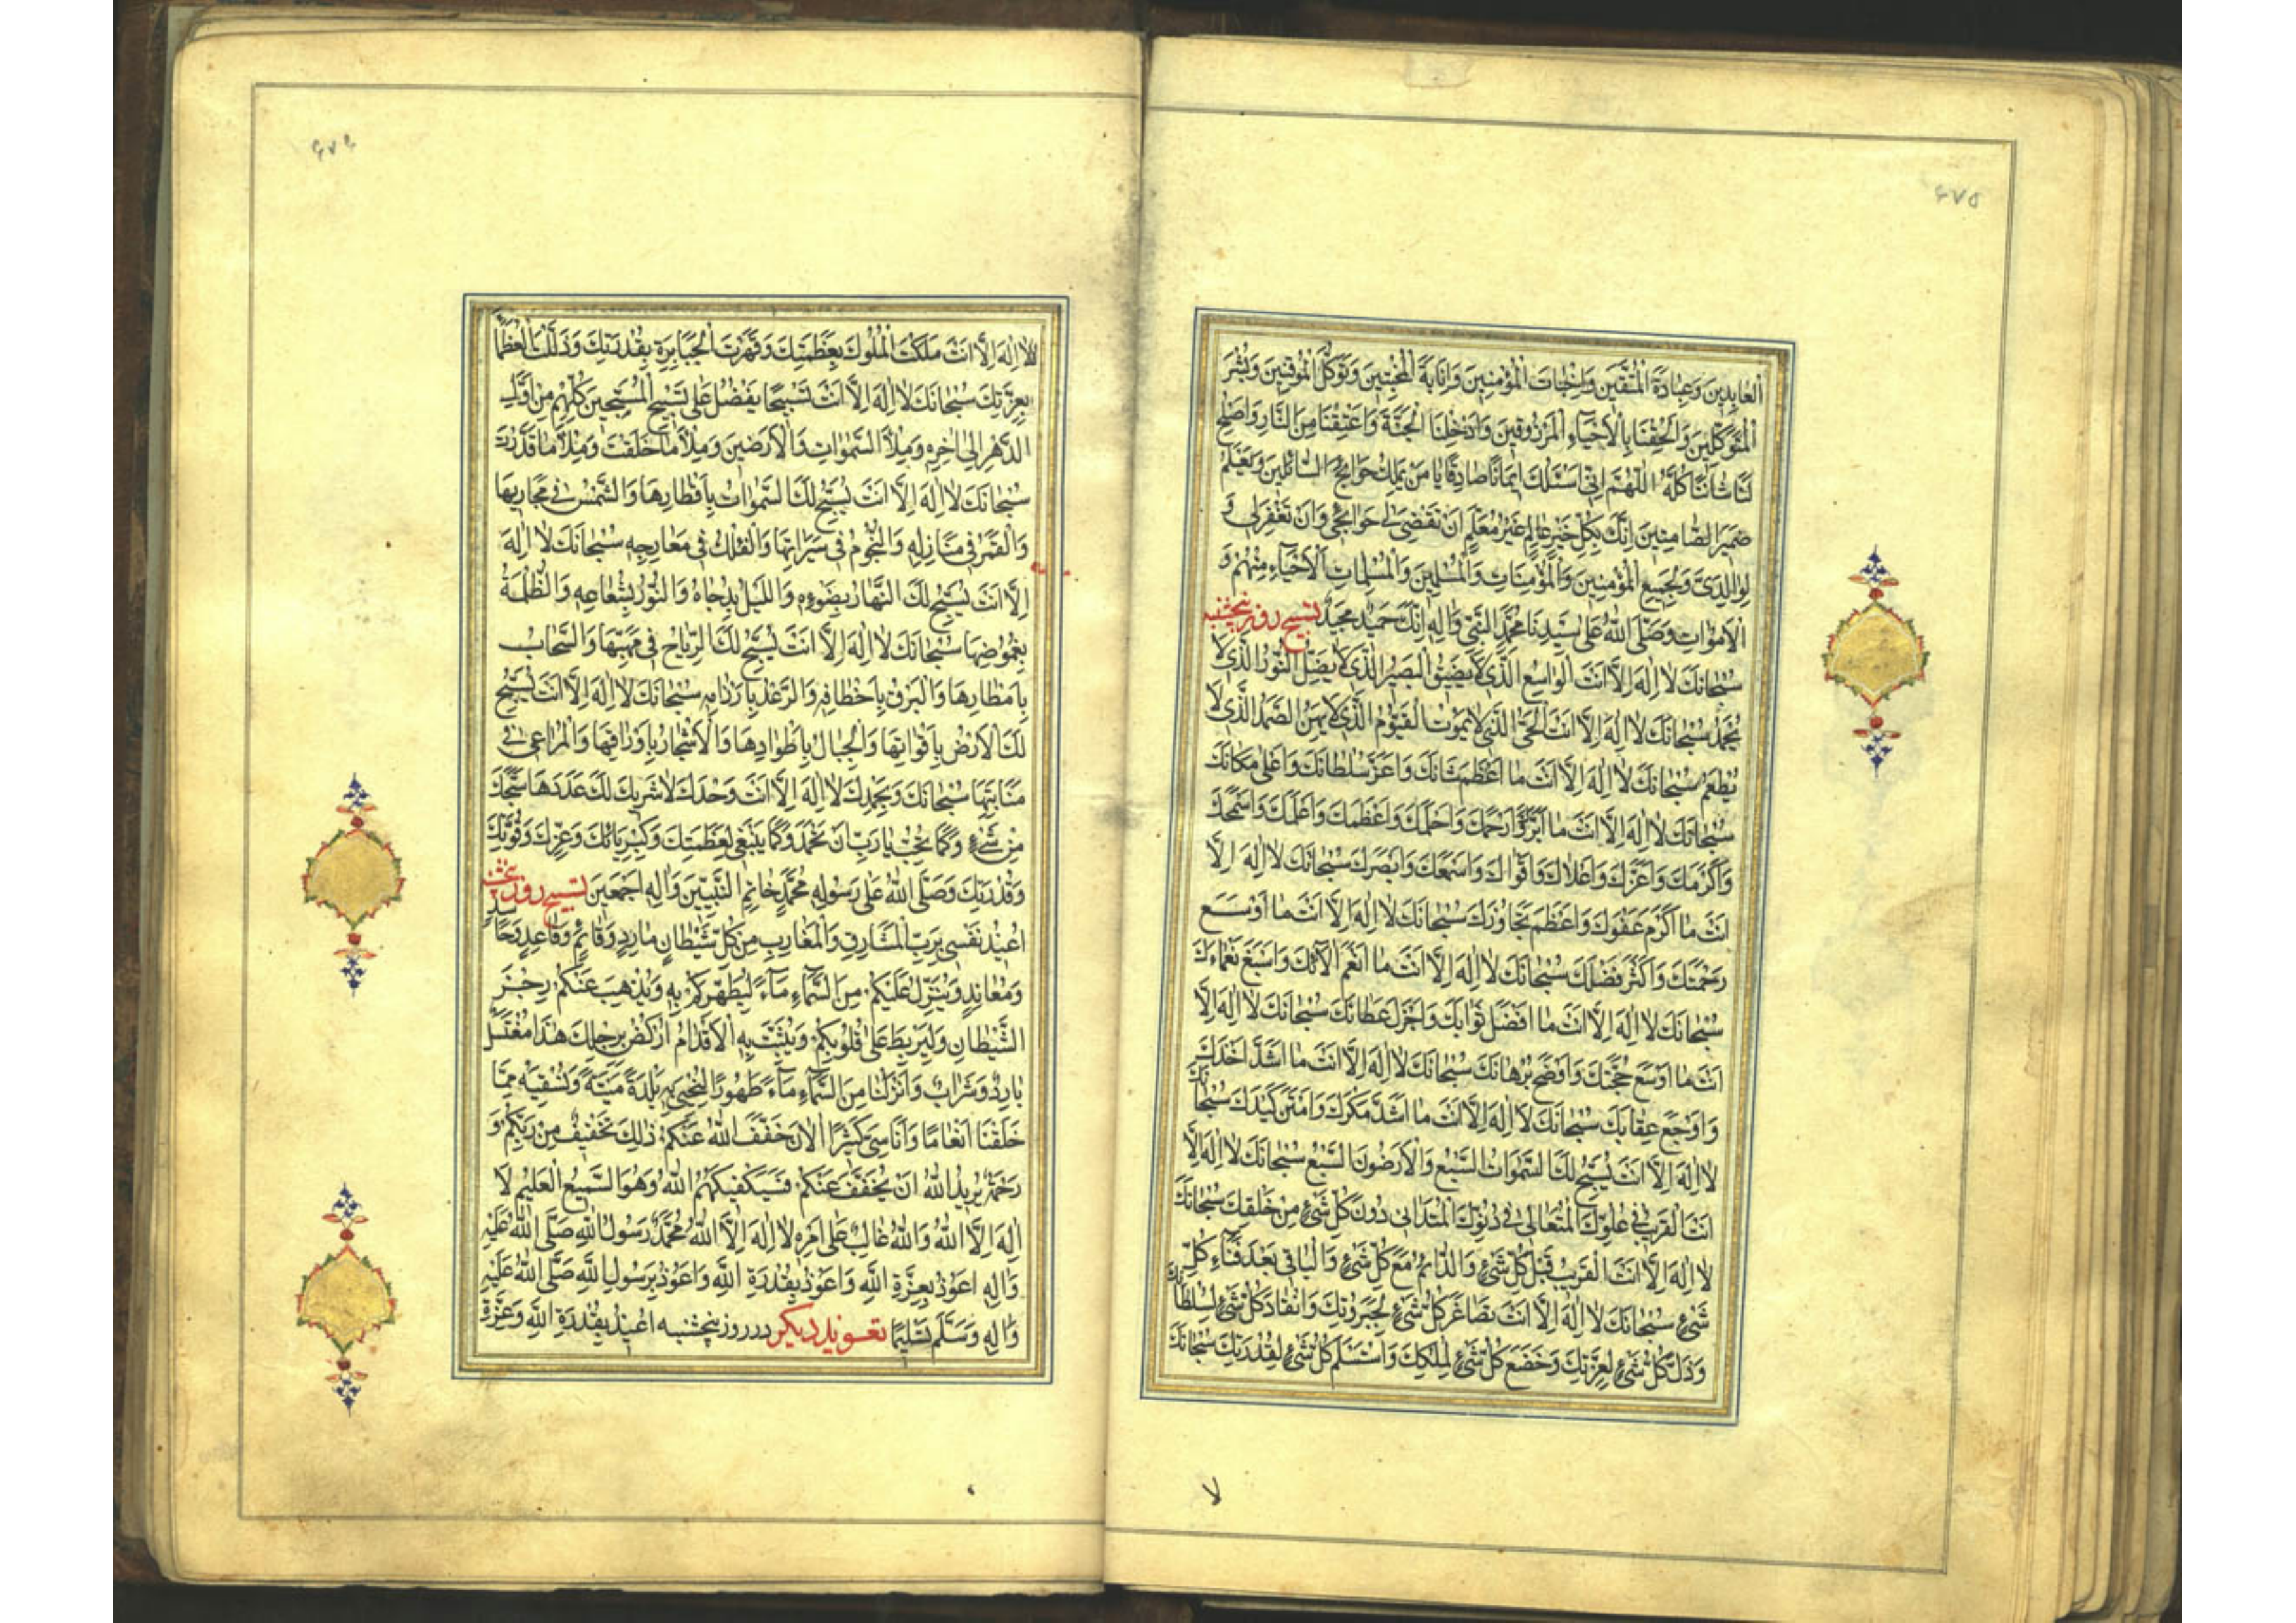 ۶۷۵
العابدين وعبادة المتقين واخبات المؤمنين وانابة المخبتين وتوكل الموقنين وبشر
المتوكلين والحقنا بالاحياء المرزوقين وادخلنا الجنة واعتقنا من النار واصلح
لنا شاننا كله اللهم اني اسئلك ايمانا صادقا يا من يملك حوائج السائلين ويعلم
ضمير الصامتين انك بكل خير عالم غير معلم ان تقضي لي حوائجي وان تغفر لي و
لوالدي ولجميع المؤمنين والمؤمنات والمسلمين والمسلمات الاحياء منهم و
الاموات وصلى الله على سيدنا محمد النبي واله انك حميد مجيد تسبيح روز پنجشنبه
سبحانك لا اله الا انت الواسع الذي لا يضيق البصير الذي لا يضل النور الذي لا
يخمد سبحانك لا اله الا انت الحي الذي لا يموت القيوم الذي لا يهن الصمد الذي لا
يطعم سبحانك لا اله الا انت ما اعظم شانك واعز سلطانك واعلى مكانك
سبحانك لا اله الا انت ما ابرك وارحمك واحلمك واعظمك واعلمك واسمحك
واكرمك واعزك واعلاك واقواك واسمعك وابصرك سبحانك لا اله الا
انت ما اكرم عفوك واعظم تجاوزك سبحانك لا اله الا انت ما اوسع
رحمتك واكثر فضلك سبحانك لا اله الا انت ما انعم الائك واسبغ نعماءك
سبحانك لا اله الا انت ما افضل ثوابك واجزل عطائك سبحانك لا اله الا
انت ما اوسع حجتك واوضح برهانك سبحانك لا اله الا انت ما اشد اخذك
واوجع عقابك سبحانك لا اله الا انت ما اشد مكرك وامتن كيدك سبحانك
لا اله الا انت يسبح لك السموات السبع والارضون السبع سبحانك لا اله الا
انت القريب في علوك المتعالي في دنوك المتداني دون كل شيء من خلقك سبحانك
لا اله الا انت القريب قبل كل شيء والدائم مع كل شيء والباقي بعد فناء كل
شيء سبحانك لا اله الا انت تصاغر كل شيء لجبروتك وانقاد كل شيء لسلطانك
وذل كل شيء لعزتك وخضع كل شيء لملكك واستسلم كل شيء لقدرتك سبحانك
لا
۶۷۶
لا اله الا انت ملكت الملوك بعظمتك وقهرت الجبابرة بقدرتك وذللت العظماء
بعزتك سبحانك لا اله الا انت تسبيحا يفضل على تسبيح المسبحين كلهم من اول
الدهر الى اخره وملا السموات والارضين وملا ما خلقت وملا ما قدرت
سبحانك لا اله الا انت يسبح لك السموات باقطارها والشمس في مجاريها
والقمر في منازله والنجوم في سيرانها والفلك في معارجه سبحانك لا اله
الا انت يسبح لك النهار بضوءه والليل بدجاه والنور بشعاعه والظلمة
بغموضها سبحانك لا اله الا انت يسبح لك الرياح في مهبها والسحاب
بامطارها والبرق باخطافه والرعد بارزامه سبحانك لا اله الا انت يسبح
لك الارض باقواتها والجبال باطوادها والاشجار باوراقها والمراعي في
منابتها سبحانك وبحمدك لا اله الا انت وحدك لا شريك لك عدد ها سبحك
من شيء وكما تحب يا رب ان تحمد وكما ينبغي لعظمتك وكبريائك وعزك وقوتك
وقدرتك وصلى الله على رسوله محمد خاتم النبيين واله اجمعين تسبيح روز پنجشنبه
اعيذ نفسي برب المشارق والمغارب من كل شيطان مارد وقائم وقاعد وحاسد
ومعاند وينزل عليكم من السماء ماء ليطهركم به ويذهب عنكم رجز
الشيطان وليربط على قلوبكم ويثبت به الاقدام اركض برجلك هذا مغتسل
بارد وشراب وانزلنا من السماء ماء طهورا لنحيي به بلدة ميتة ونسقيه مما
خلقنا انعاما واناسي كثيرا الان خفف الله عنكم ذلك تخفيف من ربكم و
رحمة يريد الله ان يخفف عنكم فسيكفيكهم الله وهو السميع العليم لا
اله الا الله والله غالب على امره لا اله الا الله محمد رسول الله صلى الله عليه
واله اعوذ بعزة الله واعوذ بقدرة الله واعوذ برسول الله صلى الله عليه
واله وسلم تسليما تعويذ ديكر در روز پنجشنبه اعيذ بقدرة الله وعزة